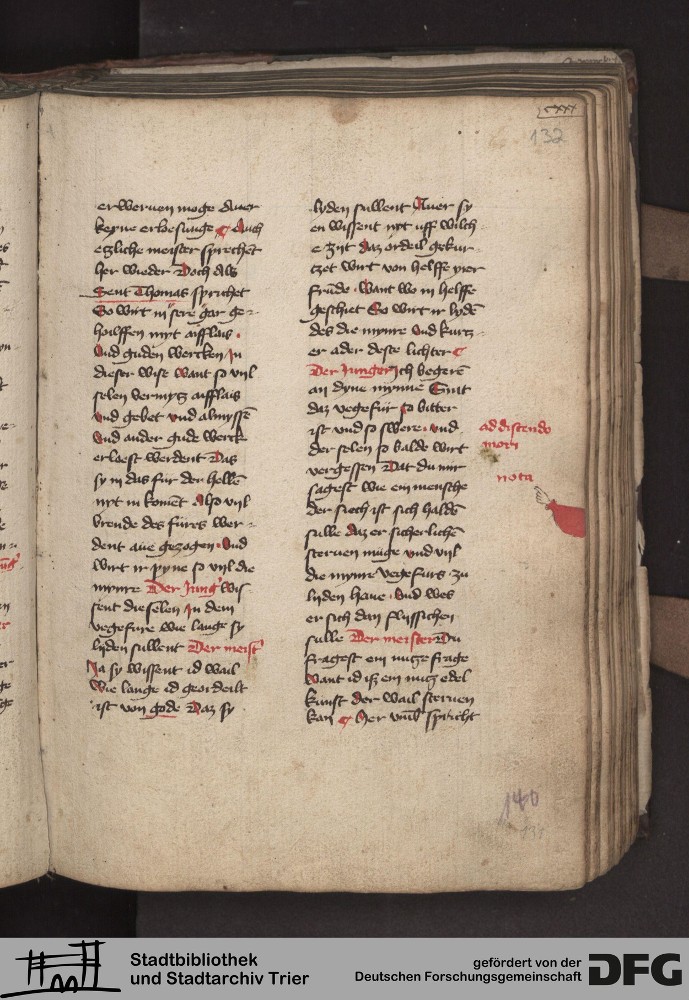 132
erweruen moge Auer
keyne erloesunge Auch
etzliche meister sprechent
her wieder Doch Als
Sent Thomas sprichet
So wirt in sere gar ge-
huilffen myt aifflais
Vnd guden wercken In
dieser wise want so vijl
selen vermytz aifflais
vnd gebet vnd almyssē
vnd ander gude werck
erloest werdent Das
sy in das fur der hellē
nyt in komēt Also vijl
brende des fures wer-
dent aue gezogen Vnd
wirt ir pyne so vijl die
mynre Der Jung' Wis
sent die selen in dem
vegefure wie lange sy
lyden sullent Der meist'
Ja sy wissent id wail
Wie lange id geordeilt
ist von gode Daz sy
lyden sullent Auer sy
en wissent nyt uff wilch
e zijt daz ordeil gekur
tzet wirt von helffe yrer
frūde Want wo in helffe
geschiet So wirt ir lydē
des die mynre vnd kurtz-
er ader deste lichter
Der Junger Ich begerē
an dyne mynne Sint
daz vegefur so bitter
ist vnd so swere vnd
der selen so balde wirt
vergessen Dat du mir
sagest wie ein mensche
der siech ist sich haldē
sulle daz er sicherlichē
steruen muge vnd vijl
die mynre vegefurs zu
lyden haue Vnd wes
er sich dan flijssichen
sulle Der meister Du
fragest ein nutze frage
Want id is ein nutz edel
kunst der wail steruen
kan Her vmb spricht
ad discendo
mori
nota
140
131
Stadtbibliothek
und Stadtarchiv Trier
gefördert von der
Deutschen Forschungsgemeinschaft
DFG